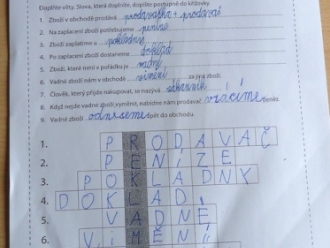 Doplňte věty. Slova, která doplníte, dopište postupně do křížovky.
1. Zboží v obchodě prodává prodavačka + prodavač
2. Na zaplacení zboží potřebujeme peníze
3. Zboží zaplatíme u pokladny
4. Po zaplacení zboží dostaneme doklad
5. Zboží, které není v pořádku je vadné
6. Vadné zboží nám v obchodě vymění za jiné zboží.
7. Člověk, který přijde nakupovat, se nazývá zákazník
8. Když nejde vadné zboží vyměnit, nabídne nám prodavač vrácíme
9. Vadné zboží odneseme zpět do obchodu.
1. PRODAVAČ
2. PENÍZE
3. POKLADNY
4. DOKLAD
5. VADNÉ
6. VYMĚNÍ